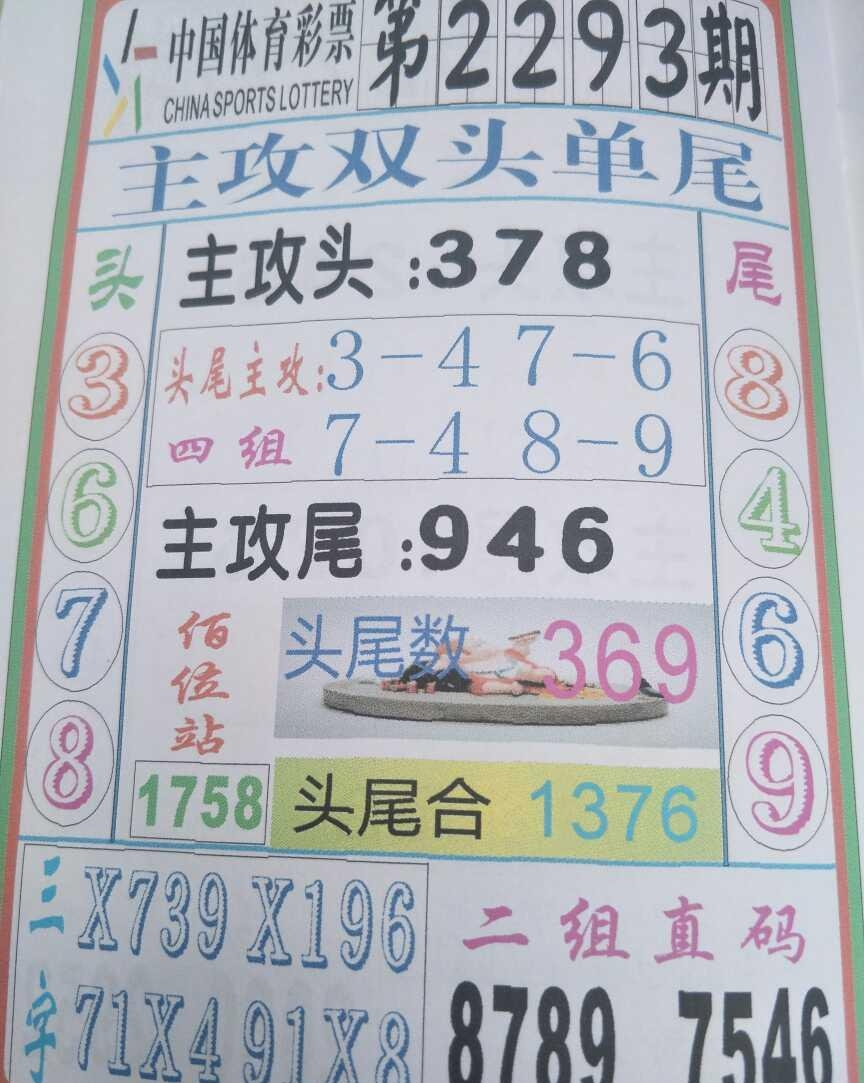 中国体育彩票 第2293期
CHINA SPORTS LOTTERY
主攻双头单尾
头
3
6
7
8
主攻头:378
头尾主攻:3-4 7-6
四组 7-4 8-9
主攻尾:946
佰位站
1758
头尾数 369
头尾合 1376
尾
8
4
6
9
三字
X739 X196
71X4 91X8
二组直码
8789 7546